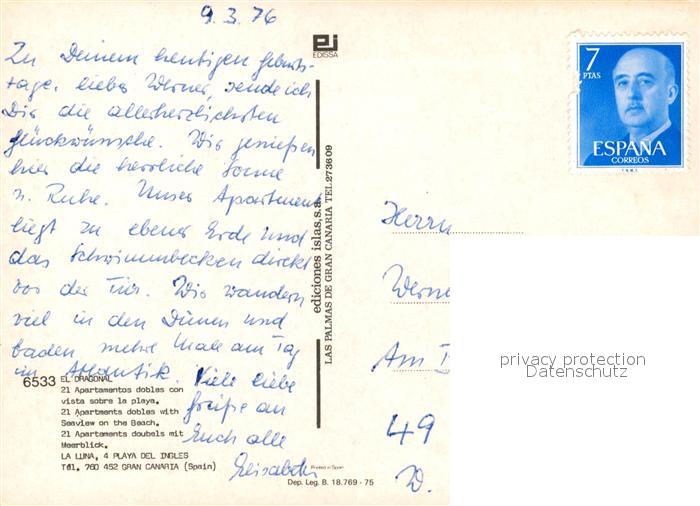 9.3.76
Zu Deinem heutigen Geburts-
tage, lieber Werner, sende ich
Dir die allerherzlichsten
Glückwünsche. Wir genießen
hier die herrliche Sonne
u. Ruhe. Unser Apartment
liegt zu ebener Erde und
das Schwimmbecken direkt
vor der Tür. Wir wandern
viel in den Dünen und
baden mehre Male am Tag
im Atlantik. Viele liebe
Grüße an
Euch alle
Elisabeth
6533 EL DRAGONAL
21 Apartamentos dobles con
vista sobre la playa.
21 Apartments dobles with
Seaview on the Beach.
21 Apartments doubels mit
Meerblick.
LA LUNA, 4 PLAYA DEL INGLES
Tél. 760 452 GRAN CANARIA (Spain)
Printed in Spain
Dep. Leg. B. 18.769 - 75
EDISSA
ediciones islas,s.a.
LAS PALMAS DE GRAN CANARIA TEL.273609
7
PTAS
ESPAÑA
CORREOS
Herrn
Werne
Am
49
D.
privacy protection
Datenschutz